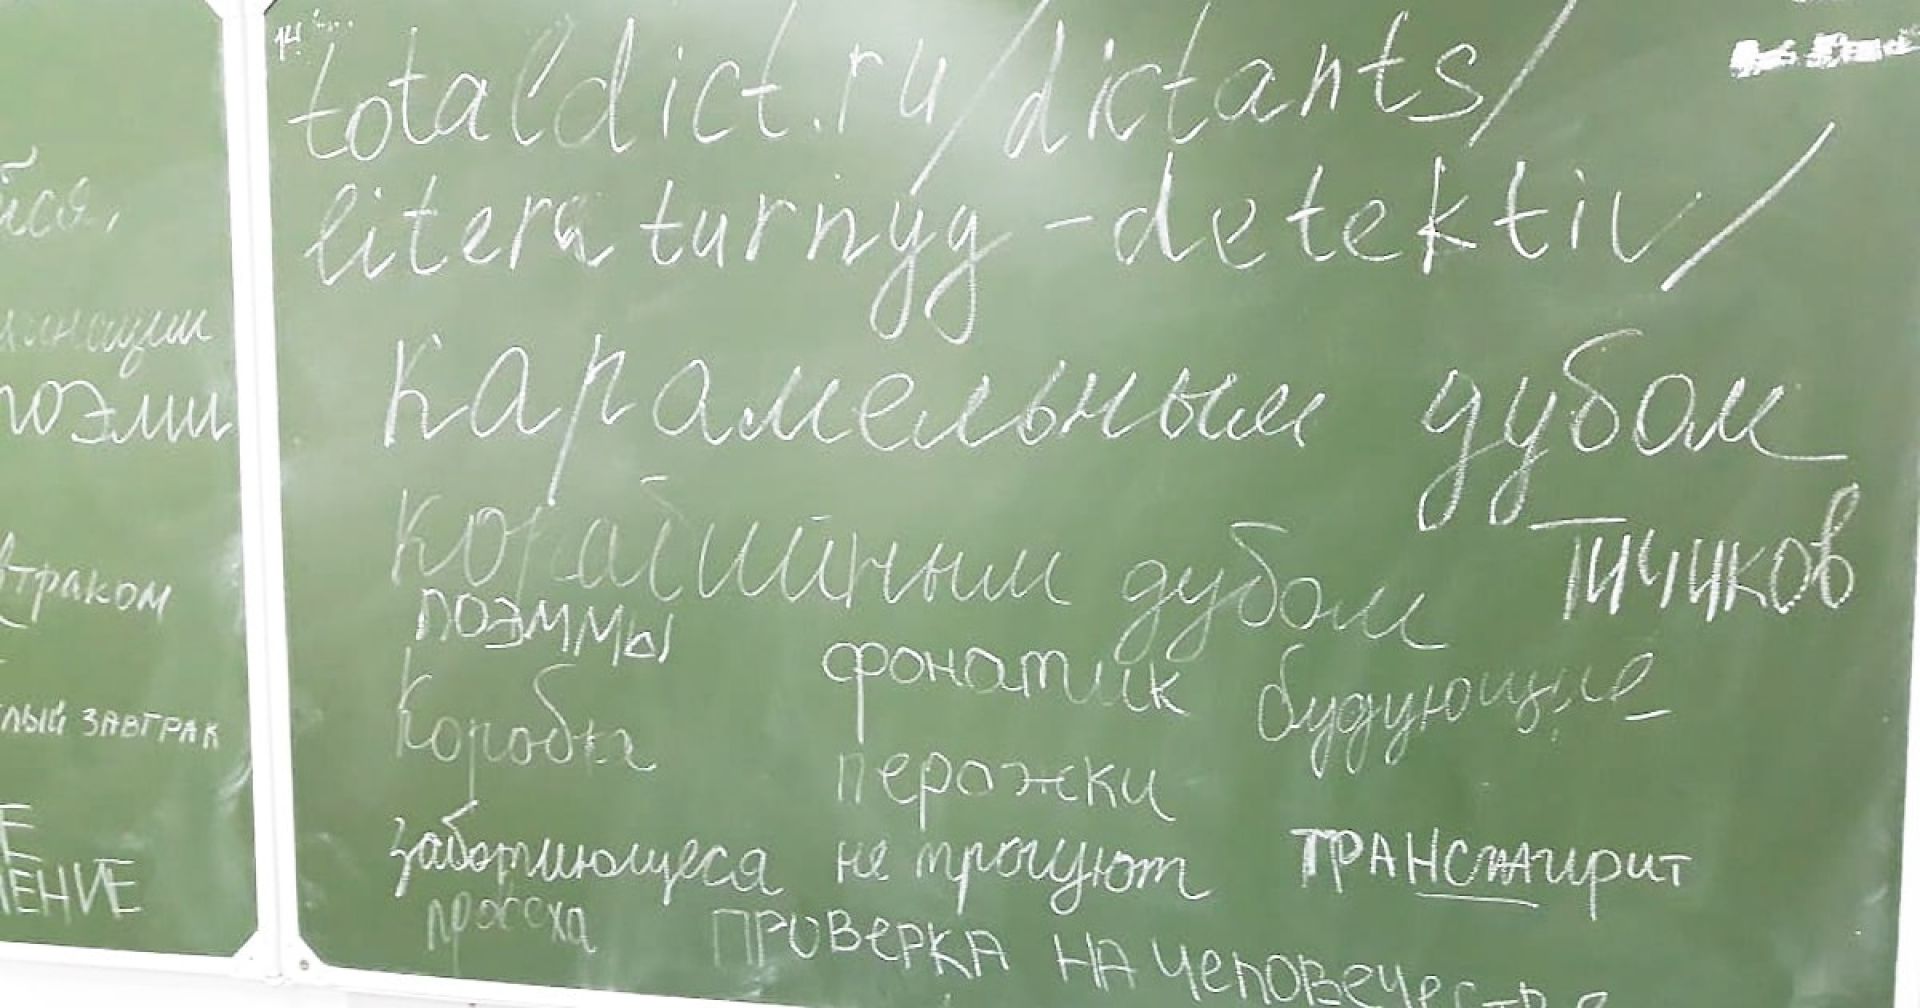 йся,
поэми
втраком
лый завтрак
ЛЕНИЕ
totaldict.ru/dictants/
literaturnyy-detektiv/
карамельным дубом
корабийным дубом Тичиков
поэммы
фонатик будующие
Коробка
перожки
заботиющеся не трогуют ТРАНСЖИРИТ
ПРОВЕРКА НА ЧЕЛОВЕЧЕСТВА